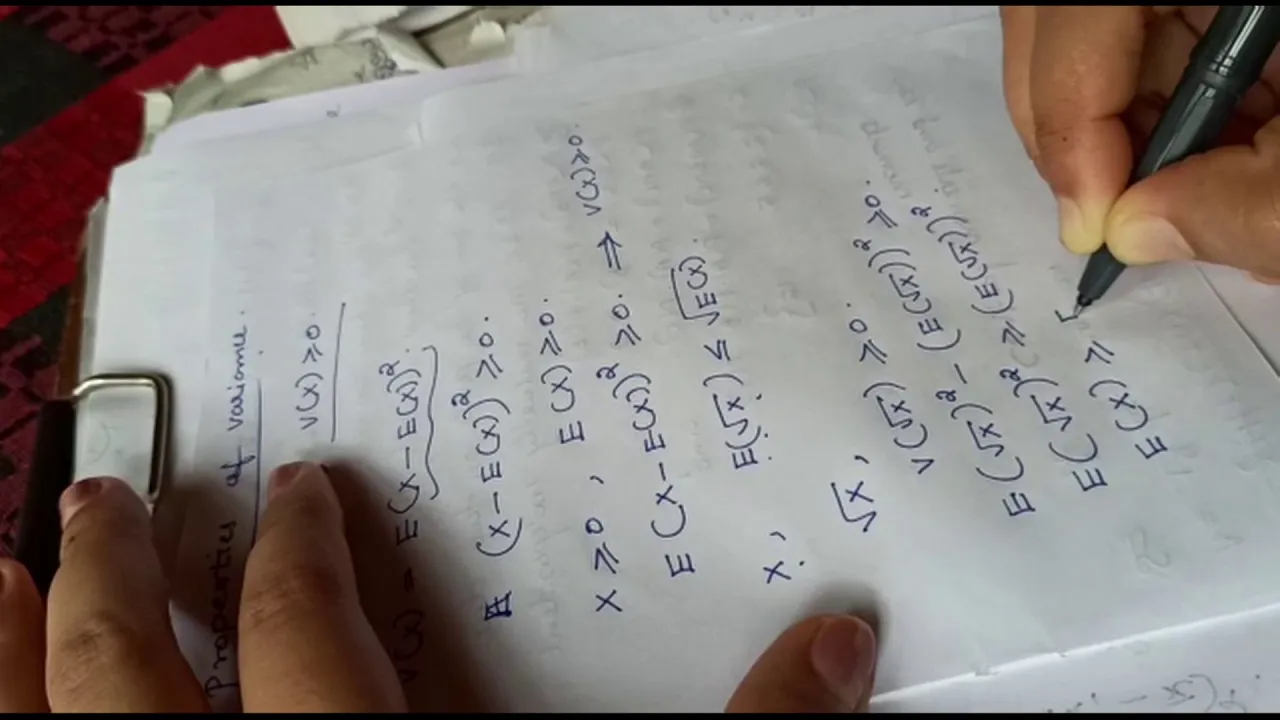 Properties of variance.
V(x) ≥ 0.
V(x) = E(x - E(x))².
(x - E(x))² ≥ 0.
x ≥ 0, E(x) ≥ 0.
E(x - E(x))² ≥ 0. ⇒ V(x) ≥ 0.
x, E(√x) ≤ √E(x).
√x, V(√x) ≥ 0.
E(√x)² - (E(√x))² ≥ 0.
E(√x)² ≥ (E(√x))².
E(x) ≥